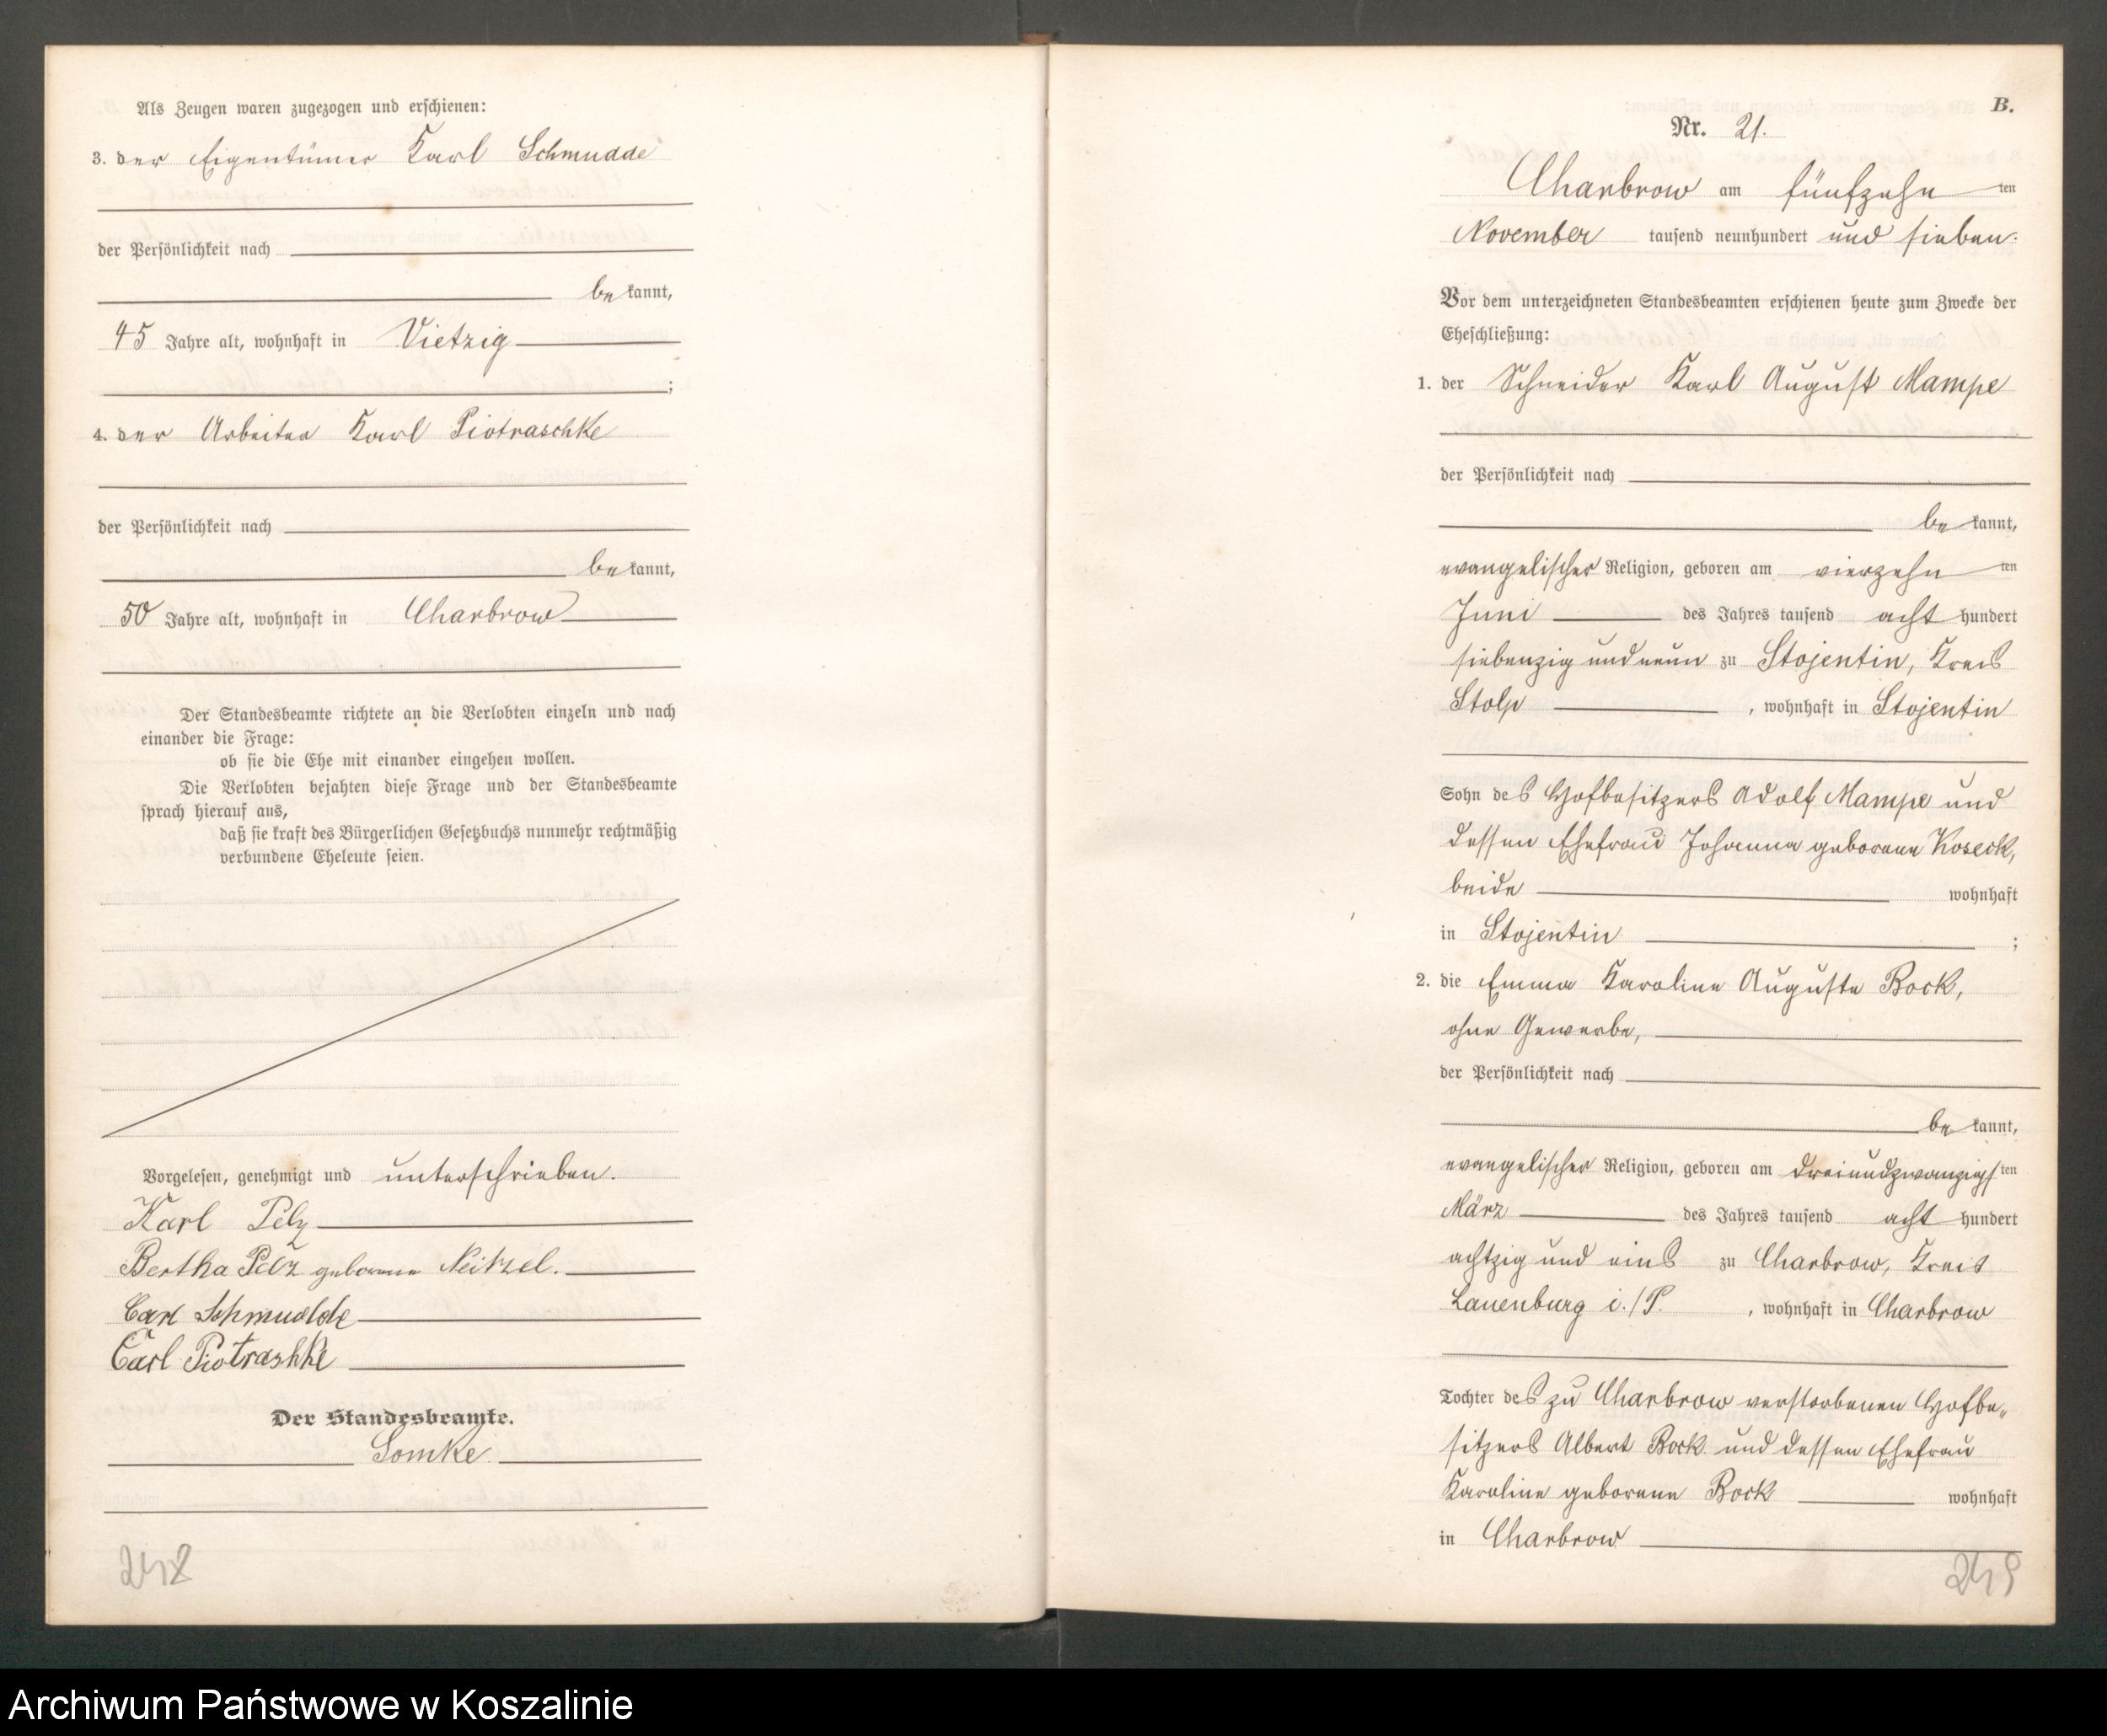 Als Zeugen waren zugezogen und erschienen:
3. der Eigentümer Karl Schmudde
der Persönlichkeit nach
be kannt,
45 Jahre alt, wohnhaft in Vietzig
;
4. der Arbeiter Karl Piotraschke
der Persönlichkeit nach
be kannt,
50 Jahre alt, wohnhaft in Charbrow
Der Standesbeamte richtete an die Verlobten einzeln und nach
einander die Frage:
ob sie die Ehe mit einander eingehen wollen.
Die Verlobten bejahten diese Frage und der Standesbeamte
sprach hierauf aus,
daß sie kraft des Bürgerlichen Gesetzbuchs nunmehr rechtmäßig
verbundene Eheleute seien.
Vorgelesen, genehmigt und unterschrieben.
Karl Pelz
Bertha Pelz geborene Neitzel.
Carl Schmudde
Carl Piotrashke
Der Standesbeamte.
Lomke.
248
B.
Nr. 21.
Charbrow am fünfzehn ten
November tausend neunhundert und sieben.
Vor dem unterzeichneten Standesbeamten erschienen heute zum Zwecke der
Eheschließung:
1. der Schneider Karl August Mampe
der Persönlichkeit nach
be kannt,
evangelischer Religion, geboren am vierzehn ten
Juni des Jahres tausend acht hundert
siebenzig und neun zu Stojentin, Kreis
Stolp , wohnhaft in Stojentin
Sohn des Hofbesitzers Adolf Mampe und
dessen Ehefrau Johanna geborene Koseck,
beide wohnhaft
in Stojentin ;
2. die Emma Karoline Auguste Bock,
ohne Gewerbe,
der Persönlichkeit nach
be kannt,
evangelischer Religion, geboren am dreiundzwanzigs ten
März des Jahres tausend acht hundert
achtzig und eins zu Charbrow, Kreis
Lauenburg i./P. , wohnhaft in Charbrow
Tochter des zu Charbrow verstorbenen Hofbe„
sitzers Albert Bock und dessen Ehefrau
Karoline geborene Bock wohnhaft
in Charbrow
249
Archiwum Państwowe w Koszalinie